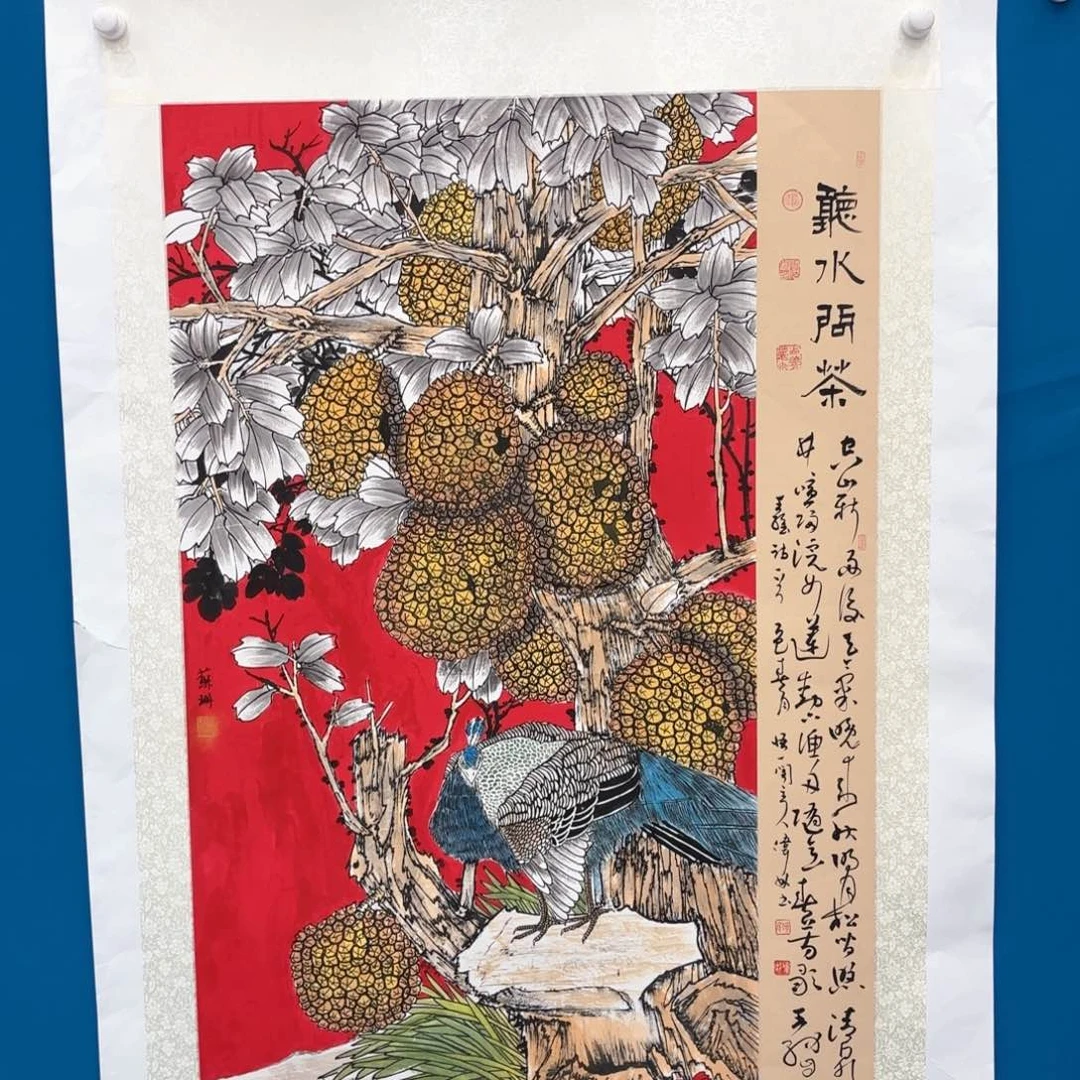 聽水問茶
空山新雨後天氣晚來秋明月松間照清泉
竹喧歸浣女蓮動下漁舟隨意春芳歇王孫
王維詩一首
蘇琳